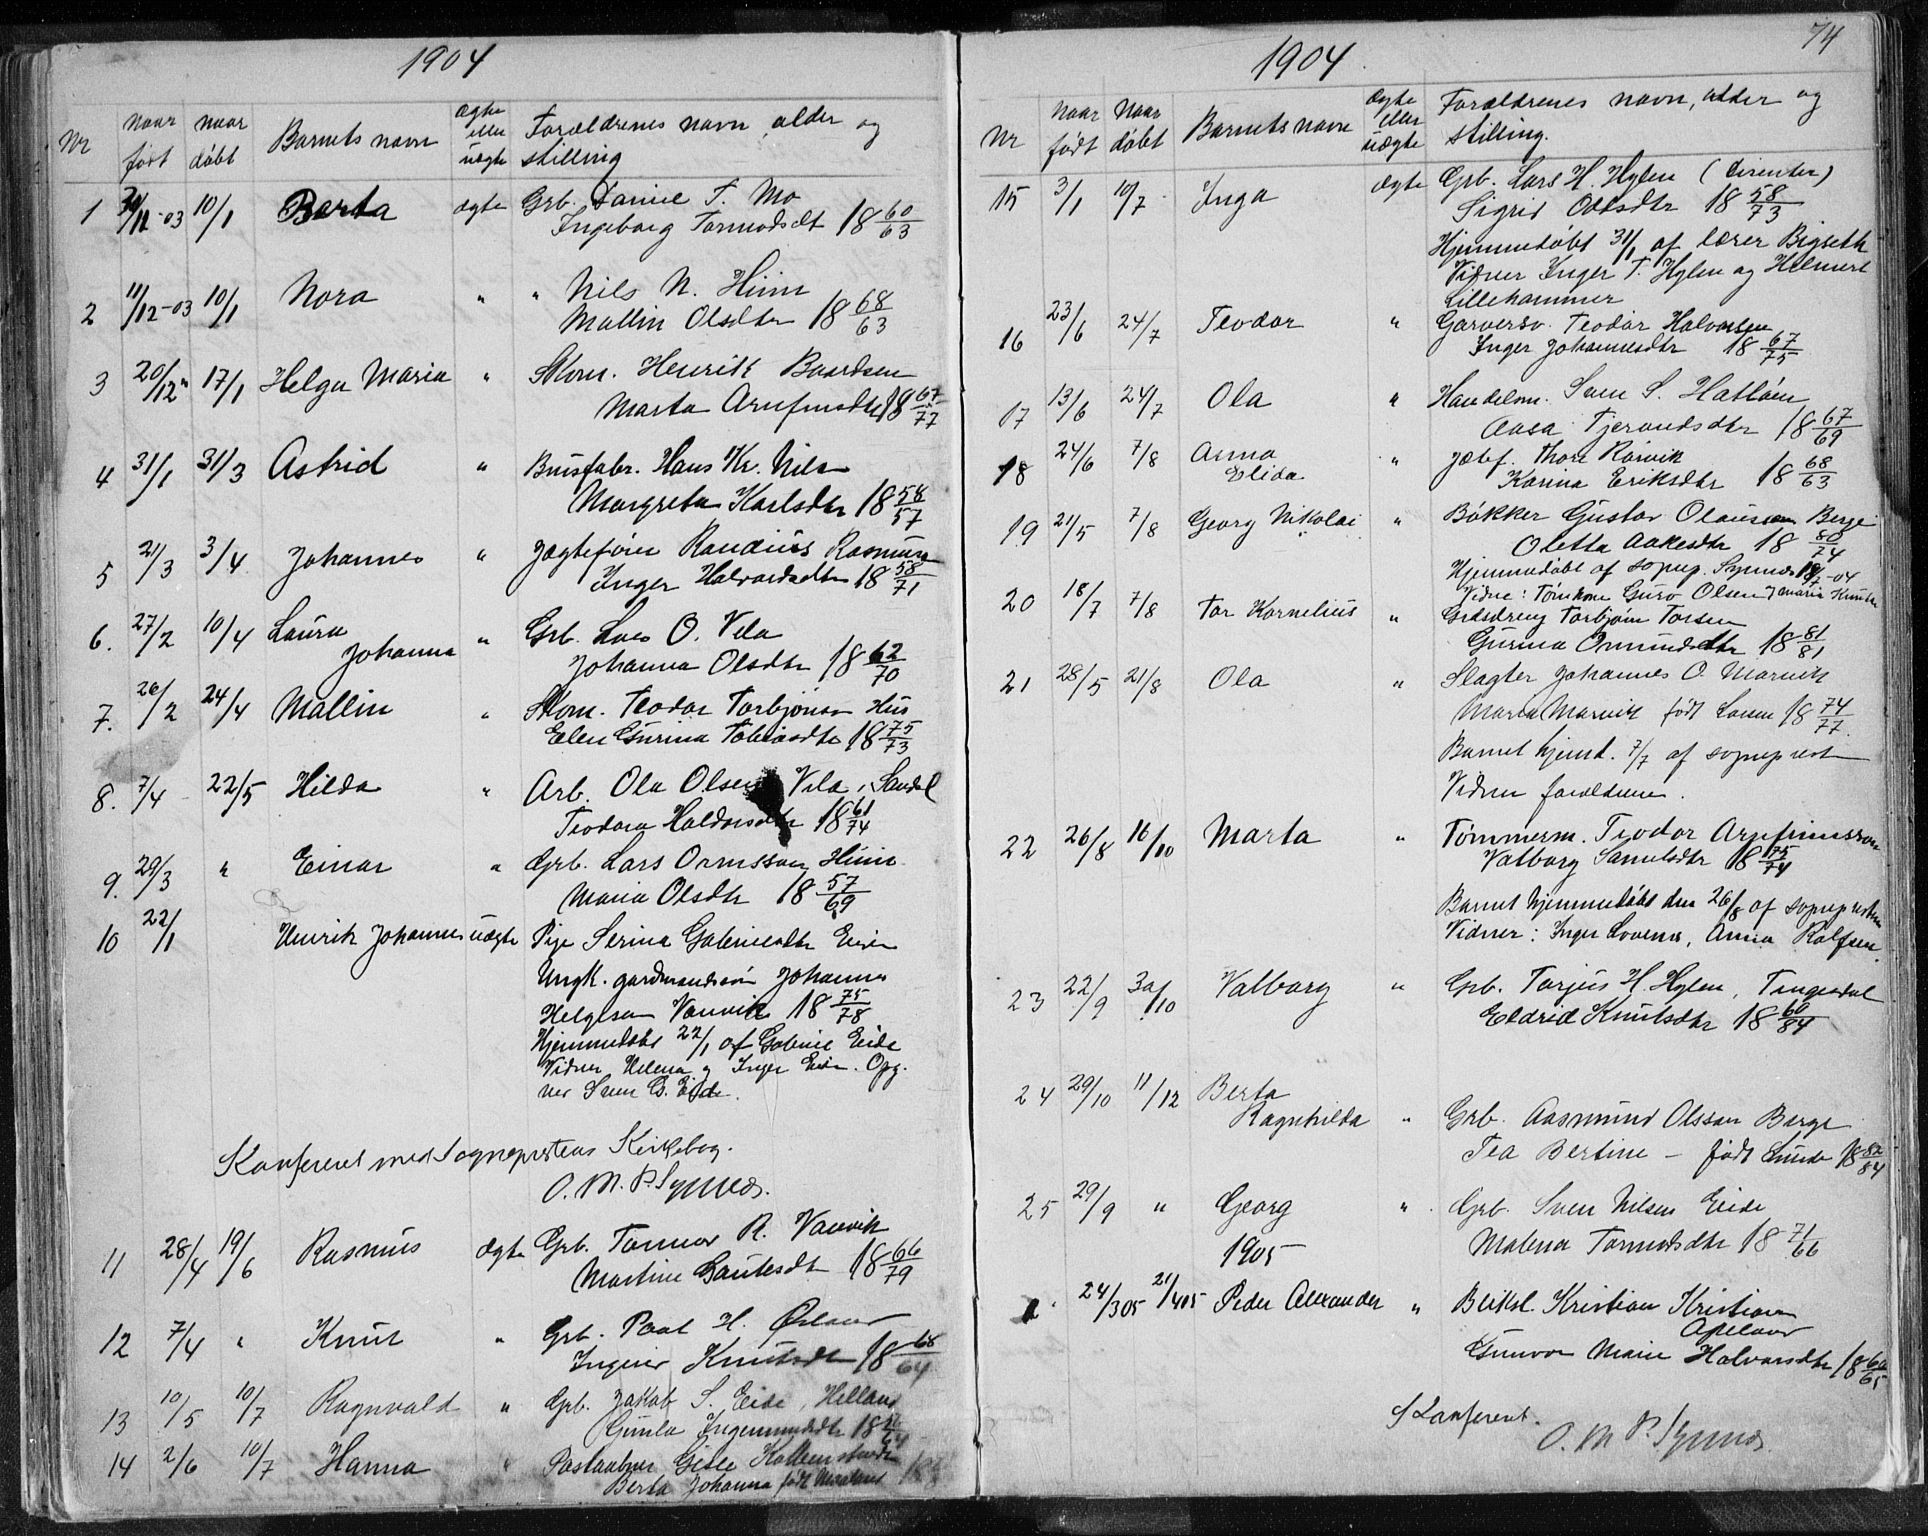 1904
Nr
naar født
naar døbt
Barnets navn
ægte eller uægte
Forældrenes navn, alder og stilling
1 30/12-03 10/1 Berta ægte Grb. Daniel T. Mo
Ingeborg Tormodsdt 18 60/63
2 11/12-03 10/1 Nora " " Nils N. Hiim
Mallin Olsdtr 18 68/63
3 20/12 " 17/1 Helga Maria " Skom. Henrik Baardsen
Marta Arnfinsdtr 18 67/77
4 31/1 31/3 Astrid " Brusfabr. Hans Kr. Nilsen
Margreta Karlsdtr 18 58/57
5 21/3 3/4 Johannes " Jægtefører Randius Rasmussen
Inger Halvardsdtr 18 58/71
6. 27/2 10/4 Laura " Grb. Lars O. Vela
Johanna Johanna Olsdtr 18 62/70
7. 26/2 24/4 Mallin " Skom. Teodor Torbjönsen Hus
Elen Gurina Tobiasdtr 18 75/73
8. 7/4 22/5 Hilda " Arb. Ola Olsen Vela, Sandal
Teodora Haldorsdtr 18 61/74
9. 29/3 " Einar " Grb. Lars Ormsson Hiim
Maria Olsdtr 18 57/69
10 22/1 Henrik Johannes uægte Pige Serina Gabrielsdtr Eide
Ungk. gardmandssøn Johannes
Helgesen Vanvik 18 75/78
Hjemmedøbt 22/1 af Gabriel Eide
Vidner Helena og Inger Eide. Opg.
ver Sven G. Eide.
Konfereret med Sognepræstens Kirkebog.
O. M. P. Synnes.
11 28/4 19/6 Rasmus ægte Grb. Tormor R. Vanvik
Martine Gautesdtr 18 66/79
12 7/4 " Knut " Grb. Paul H. Ørland
Inger Knutsdtr 18 68/64
13 10/5 10/7 Ragnvald " Grb. Jakob S. Eide, Helland
Gunla Ingemundsdtr 18
14 2/6 10/7 Hanna " Postaabner Gisle Kolbenstvedt
Berta Johanna født Maaland 18
74
1904
Nr
naar født
Naar døbt
Barnets navn
ægte eller uægte
Forældrenes navn, alder og stilling.
15 3/1 10/7 Inga ægte Grb. Lars H. Hylen (Dissenter)
Sigrid Oddsdtr 18 58/73
Hjemmedøbt 31/1 af lærer Bigseth
Vidner Inger T. Hylen og Helmert
Lillehammer
16 23/6 24/7 Teodor " Garversv. Teodor Halvorsen
Inger Johannesdtr 18 67/75
17 13/6 24/7 Ola " Handelsm. Sven S. Hatløen
Aasa Tjerandsdtr 18 67/69
18 24/6 7/8 Anna " Jæktf. Thore Rörvik
Elida Karina Eriksdtr 18 68/63
19 21/5 7/8 Georg Nikolai " Bøkker Gustav Olaussen Berge
Oletta Aakesdtr 18 80/74
Hjemmedøbt af sognep. Synnes 19/7-04
Vidne: Tømkone Guro Olsen, Maria Knutsen
20 18/7 7/8 Tor Kornelius " Grdsdreng Torbjørn Torsen
Gurina Omundsdtr 18 81/81
21 28/5 21/8 Ola " Slagter Johannes O. Marvik
Maria Marvik født Larsen 18 74/77
Barnet hjemd. 7/7 af sogneprest
Vidner foreldrene.
22 26/8 16/10 Marta " Tømmerm. Teodor Arnfinnsson
Valborg Samelsdtr 18 75/74
Barnet hjemmedøbt den 26/8 af sognepresten
Vidner: Inger Lovena, Anna Rolfsen.
23 22/9 30/10 Valborg " Grb. Torjus H. Hylen, Tengesdal
Eldrid Knutsdtr 18 60/84
24 29/10 11/12 Berta
Ragnhilda " Grb. Aasmund Olsson Berge
Tea Bertine – født Lunde 18 82/84
25 29/9 " Georg " Grb. Sven Nilsen Eide
Malena Tormodsdtr 18 71/66
1905
1 24/3 05 21/4 05 Peder Alexander " Bliksl. Kristian Kristiansen
Apeland
Gunvor Marie Halvorsdtr 18 60/65
Konfereret.
O. M. P. Synnes.